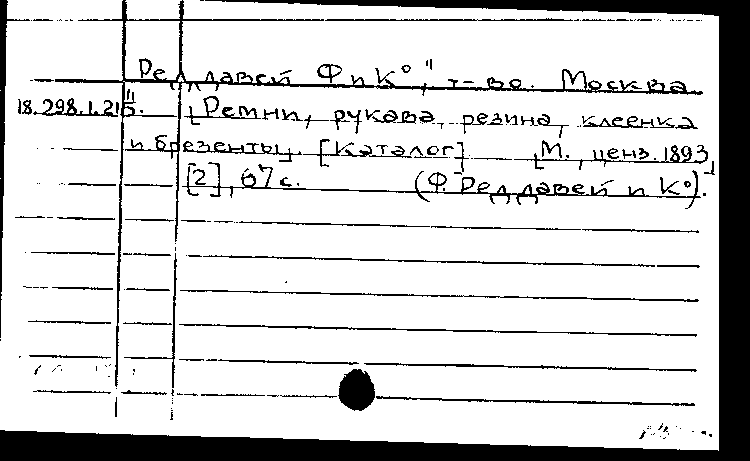 "Реддавей Ф и К°", т-во. Москва.
18.298.1.215. [Ремни, рукава, резина, клеенка
и брезенты]. [Каталог] [М., ценз. 1893]
[2], 67 с. (Ф. Реддавей и К°).